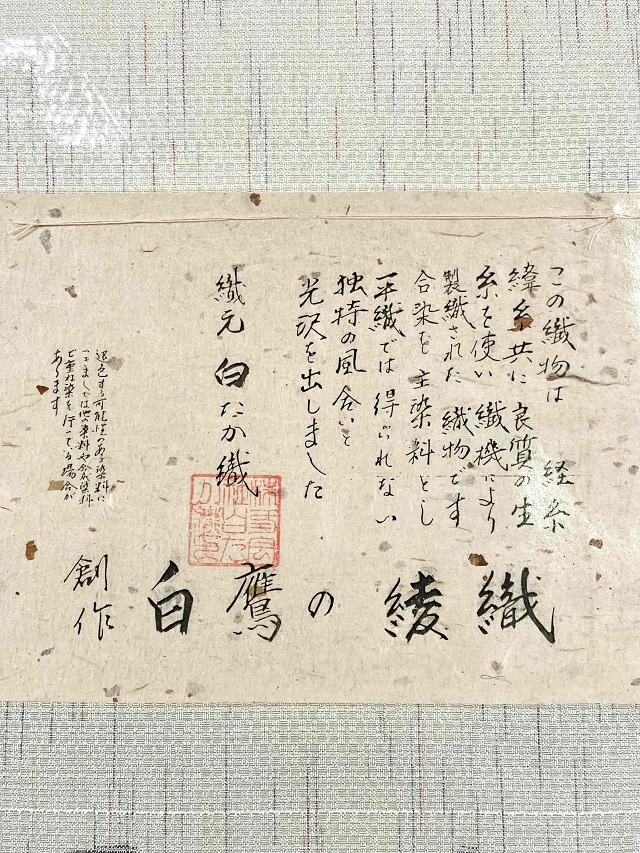 この織物は 経糸
緯糸共に 良質の生
糸を使い 織機により
製織された 織物です
合染を 主染料とし
平織では 得られない
独特の風合いと
光沢を出しました
織元 白たか織
退色する可能性のある染料に
つきましては他の染料や合成染料
で重ね染を行っている場合が
あります
創作 白鷹の綾織